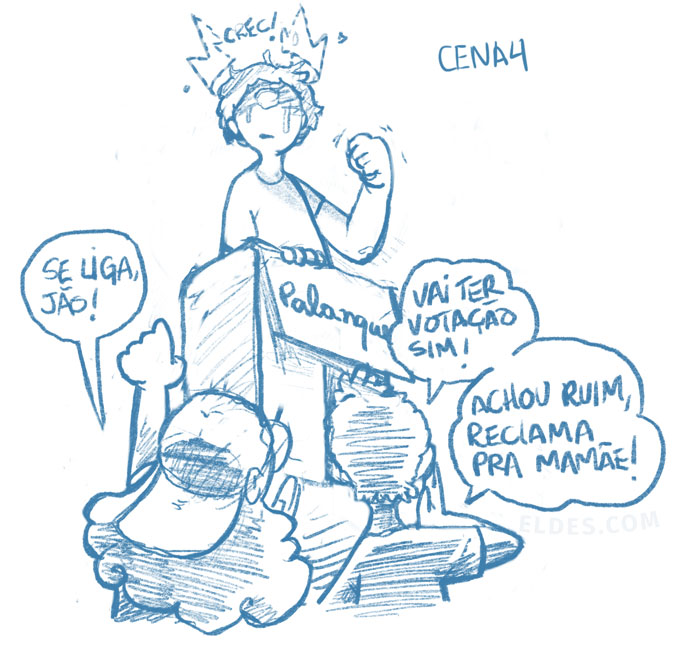 CREC!
CENA4
SE LIGA,
JÃO!
Palanque
VAI TER
VOTAÇÃO
SIM!
ACHOU RUIM,
RECLAMA
PRA MAMÃE!
ELDES.COM